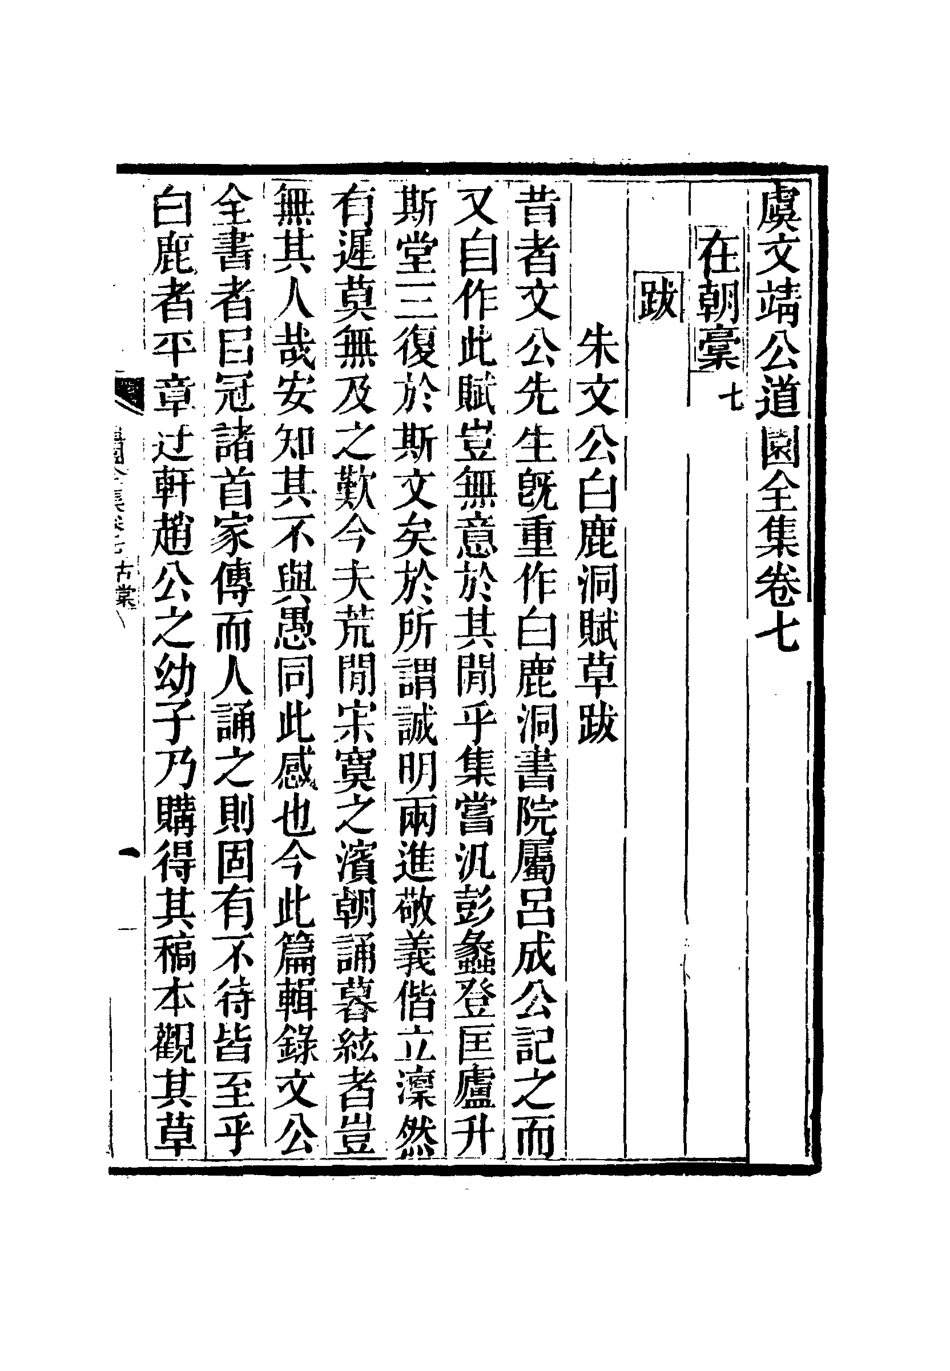 虞文靖公道園全集卷七
在朝稾七
跋
朱文公白鹿洞賦草跋
昔者文公先生旣重作白鹿洞書院屬呂成公記之而
又自作此賦豈無意於其閒乎集嘗汎彭蠡登匡廬升
斯堂三復於斯文矣於所謂誠明兩進敬義偕立凜然
有遲莫無及之歎今夫荒閒寂寞之濱朝誦暮絃者豈
無其人哉安知其不與愚同此感也今此篇輯錄文公
全書者㠯冠諸首家傳而人誦之則固有不待皆至乎
白鹿者平章迂軒趙公之幼子乃購得其稿本觀其草